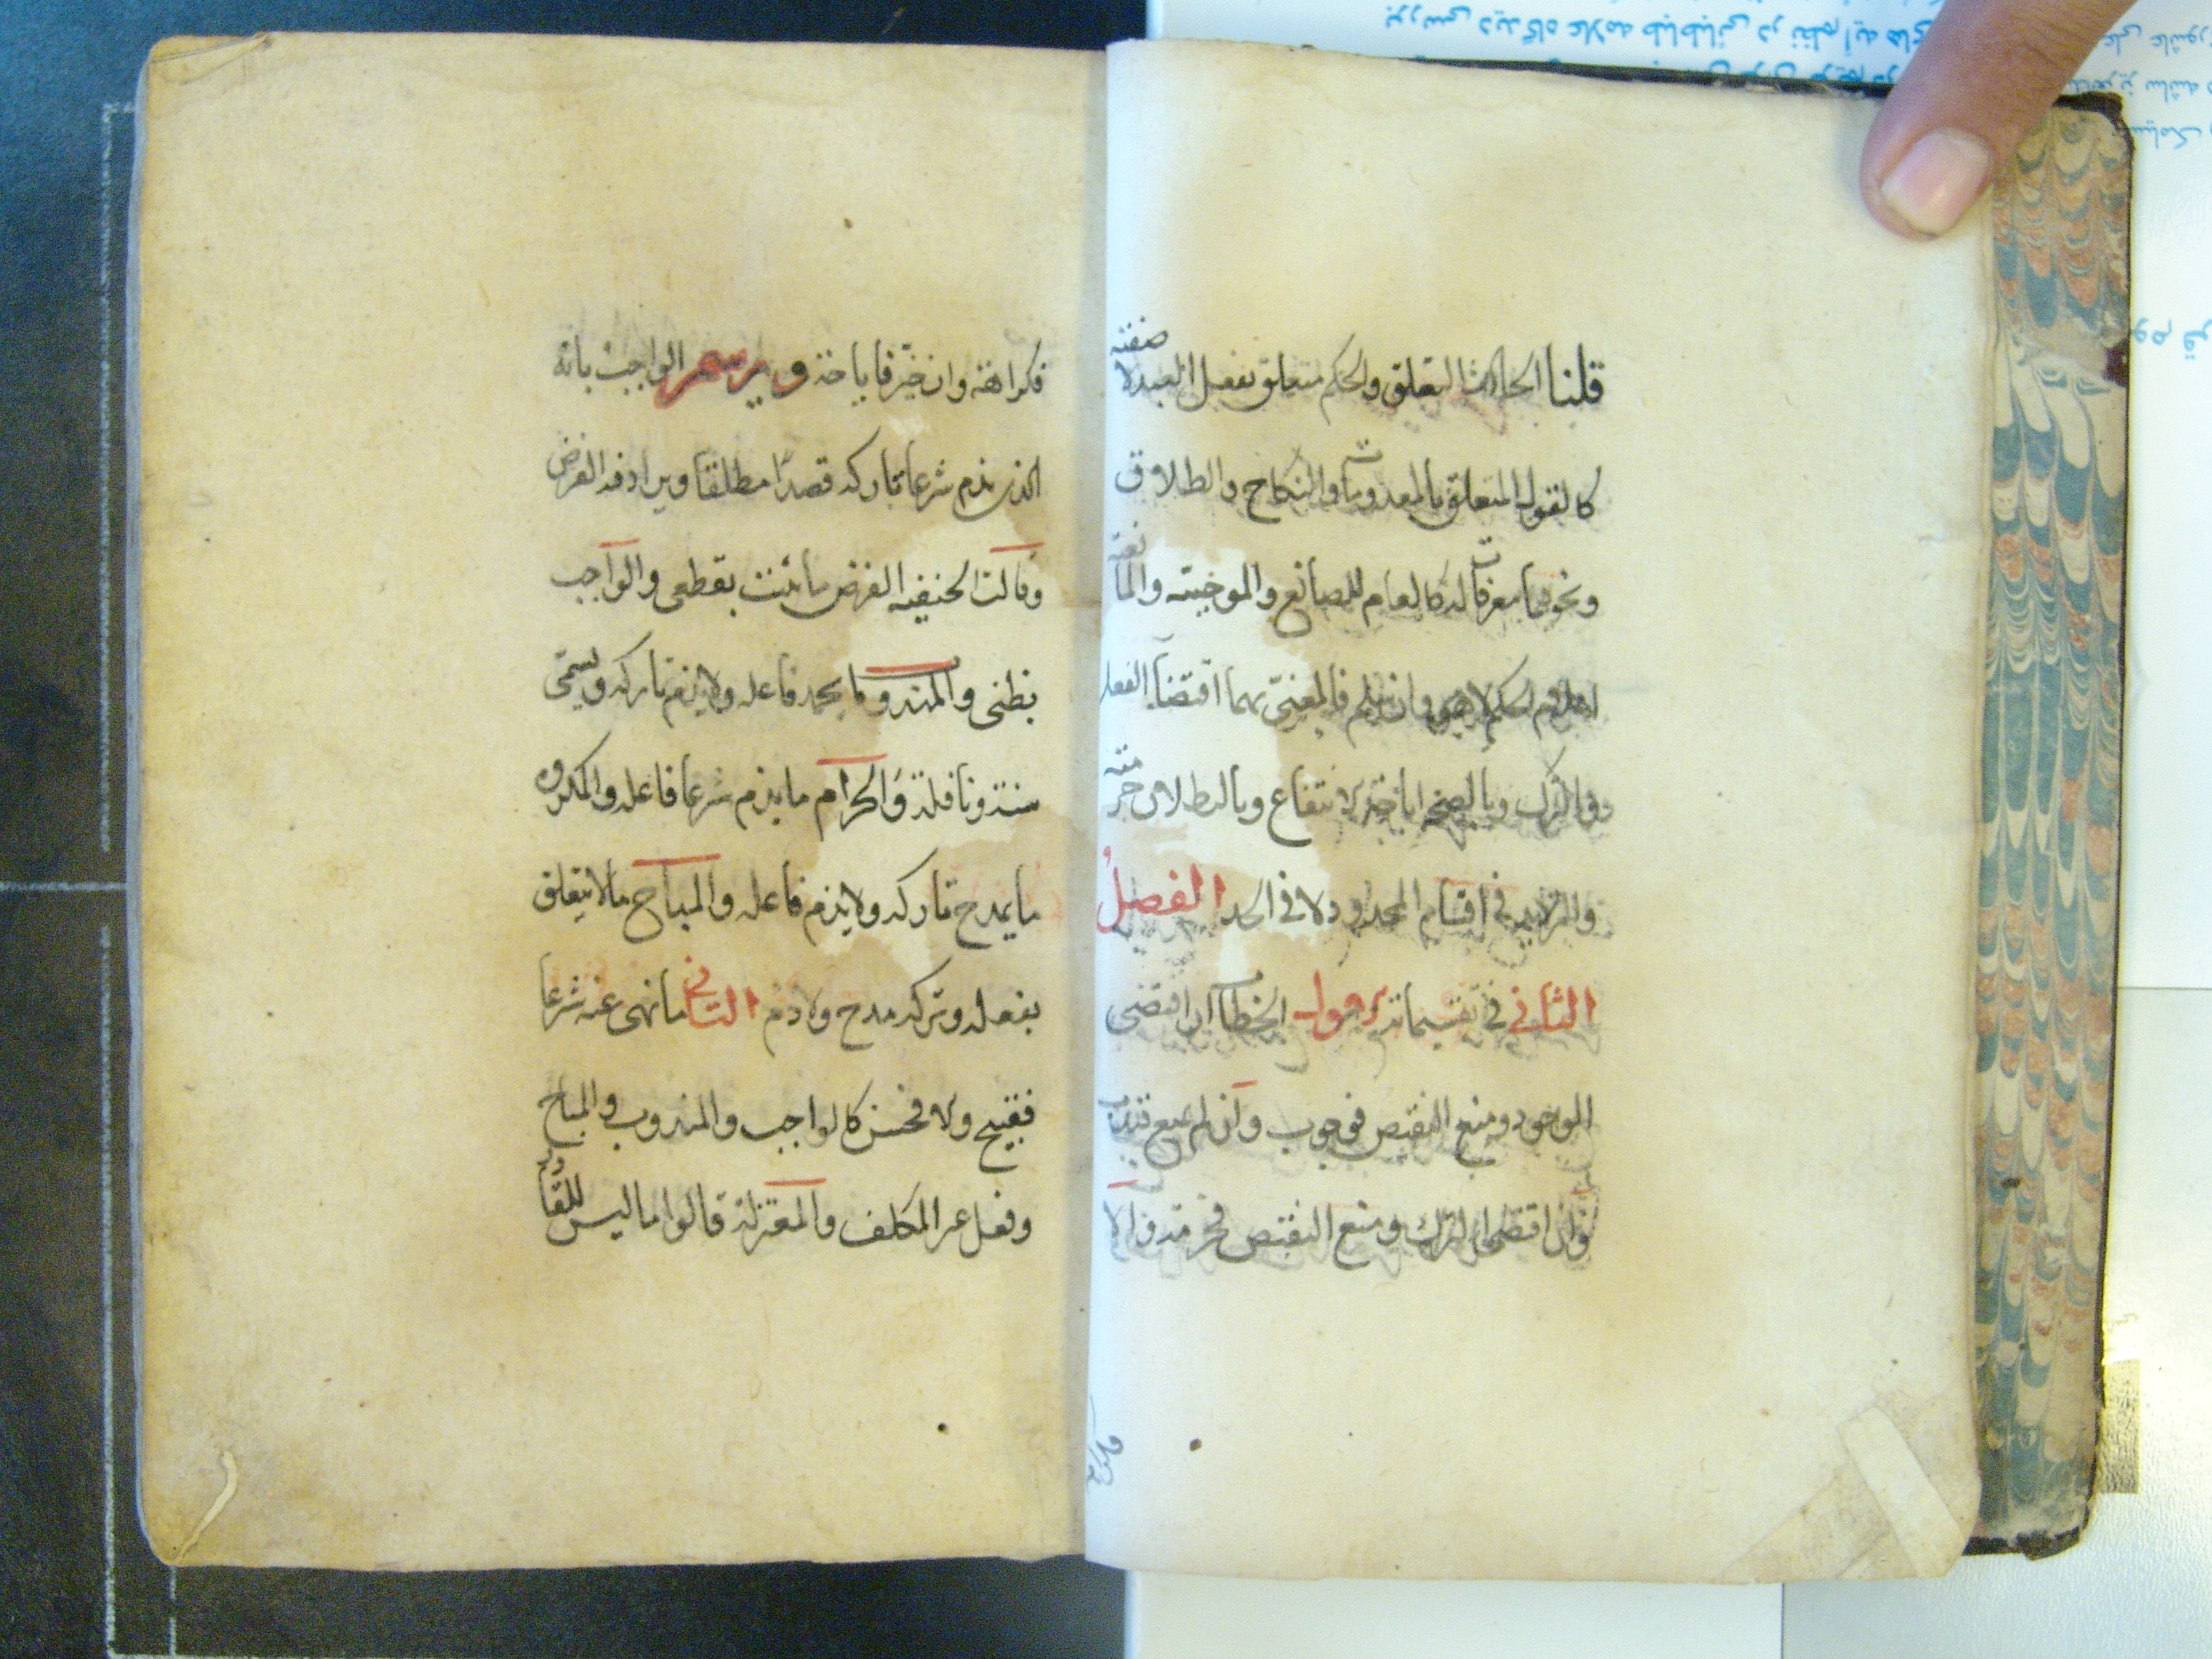 قلنا الحادث التعلق والحكم متعلق بفعل العبد لا صفته
كالقول المتعلق بالمعدومات والنكاح والطلاق
ونحوهما معرفات له كالعالم للصانع والموجبية والمانعية
اعلام الحكم لا هو وان سلم فالمعنى بهما اقتضاء الفعل
والترك وبالصحة اباحة الانتفاع وبالبطلان حرمته
والترديد في اقسام المحدود لا في الحد الفصل
الثاني في تقسيماته الاول الخطاب ان اقتضى
الوجود ومنع النقيض فوجوب وان لم يمنع فندب
وان اقتضى الترك ومنع النقيض فحرمة والا
فكراهة
فكراهة وان خير فاباحة ويرسم الواجب بانه
الذي يذم شرعا تاركه قصدا مطلقا ويرادفه الفرض
وقالت الحنفية الفرض ما ثبت بقطعى والواجب
بظنى والمندوب ما يحمد فاعله ولا يذم تاركه ويسمى
سنة ونافلة والحرام ما يذم شرعا فاعله والمكروه
ما يمدح تاركه ولا يذم فاعله والمباح ما لا يتعلق
بفعله وتركه مدح ولا ذم الثانى ما نهى عنه شرعا
فقبيح ولا فحسن كالواجب والمندوب والمباح
وفعل غير المكلف والمعتزلة قالوا ما ليس للقادر